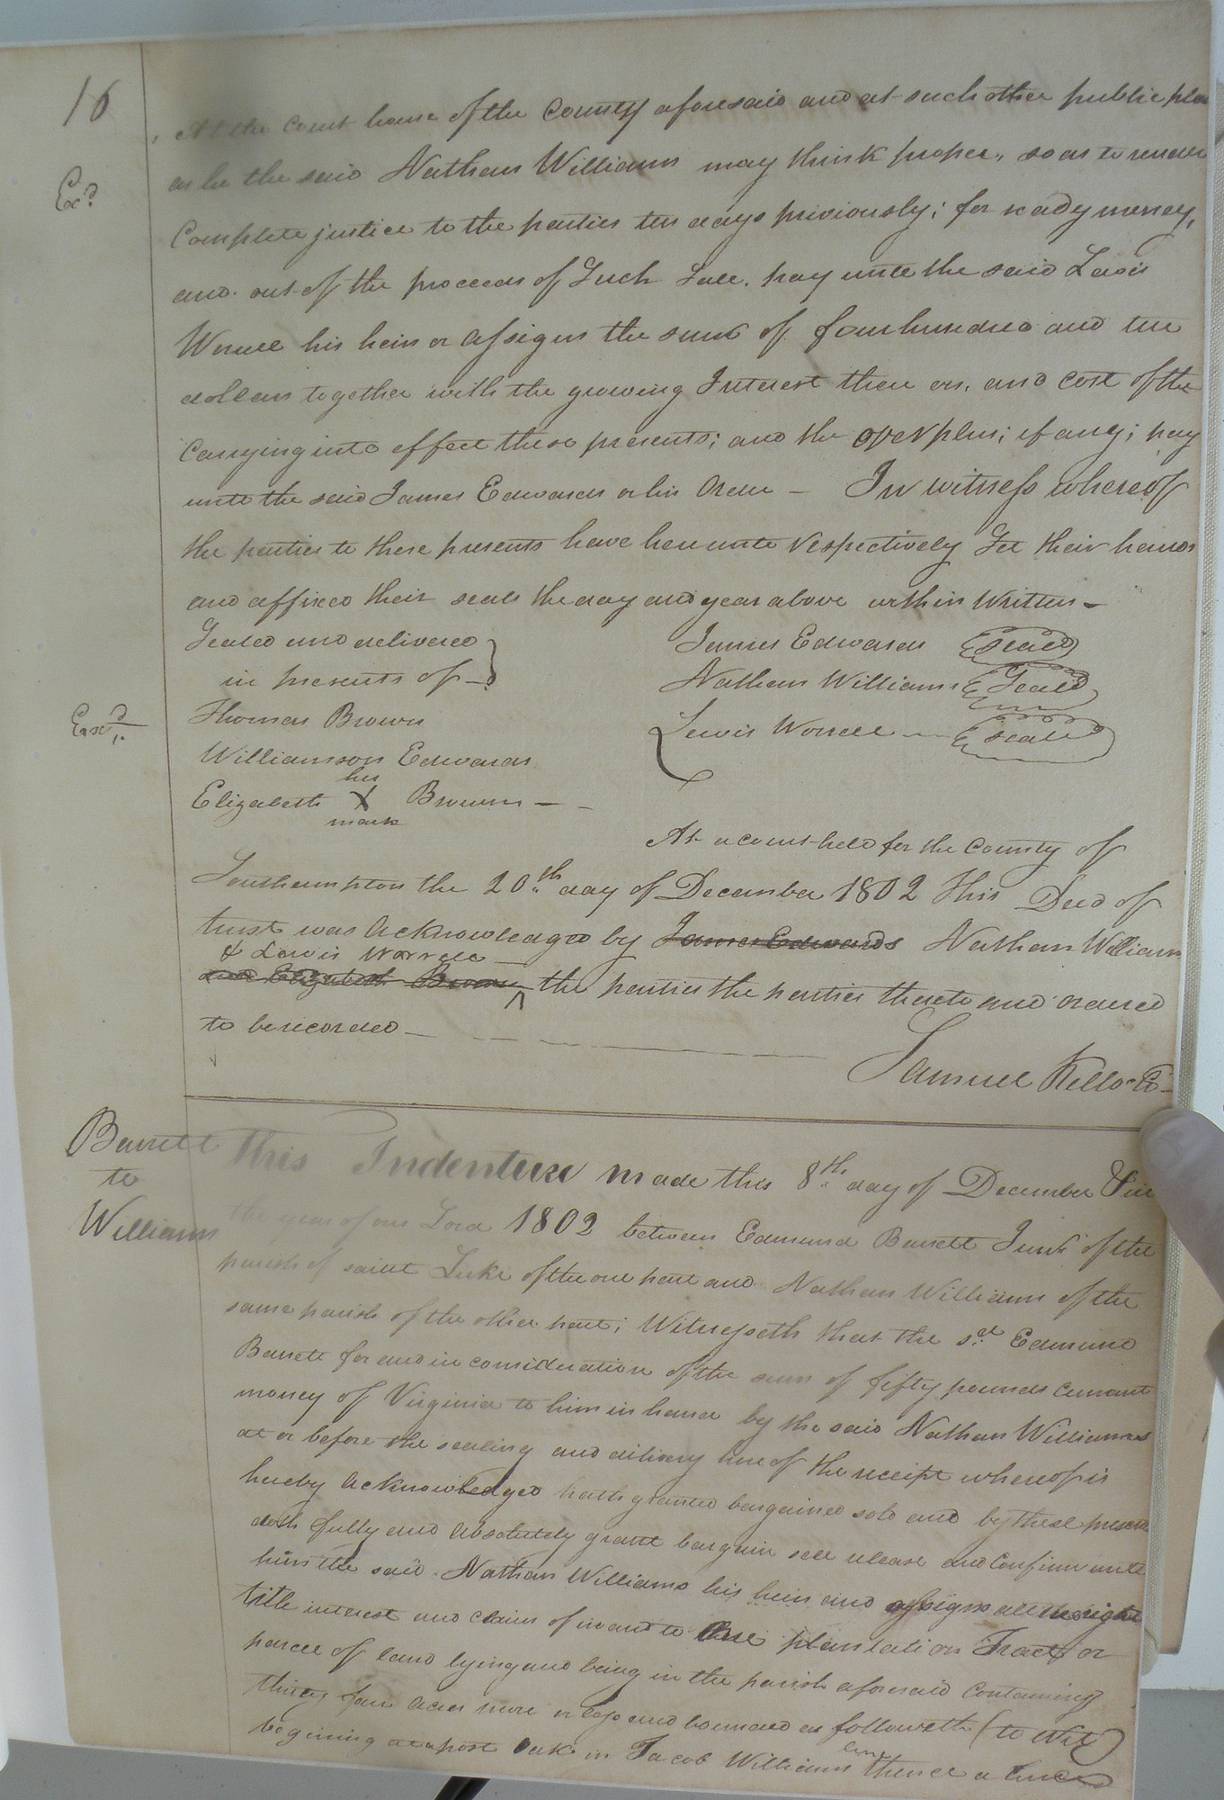 16
At the court house of the County aforesaid and at such other public place
Exd.
as he the said Nathan Williams may think proper, so as to render
Complete justice to the parties ten days previously; for ready money,
and out of the proceeds of Such Sale, pay unto the said Lewis
Worrell his heirs or assigns the sum of four hundred and ten
dollars together with the growing Interest there on, and cost of the
carrying into effect these presents; and the overplus; if any; pay
unto the said James Edwards or his Order — In witness whereof
the parties to these presents have hereunto respectively Set their hands
and affixed their seals the day and year above within Written —
Sealed and delivered
in presents of —
James Edwards (Seal)
Nathan Williams (Seal)
Lewis Worrell — (Seal)
Exd.
Thomas Brown
Williamson Edwards
Elizabeth her X mark Brown — -
At a court held for the County of
Southampton the 20th day of December 1802 This Deed of
trust was Acknowledged by James Edwards Nathan Williams
& Lewis Worrell
and Elizabeth Brown ^ the parties the parties thereto and ordered
to be recorded —
Samuel Kello Cl.
Barrett
to
Williams
This Indenture made this 8th day of December & in
the year of our Lord 1802 between Edmund Barrett Junr of the
parish of saint Luke of the one part and Nathan Williams of the
same parish of the other part; Witnesseth that the sd Edmund
Barrett for and in consideration of the sum of fifty pounds Currant
money of Virginia to him in hand by the said Nathan Williams
at or before the sealing and delivery here of the receipt whereof is
hereby Acknowledged hath granted bargained sold and by these presents
doth fully and Absolutely grant bargain sell release and Confirm unto
him the said Nathan Williams his heirs and assigns all the right
title interest and claim of in and to plantation Tract or
parcel of land lying and being in the parish aforesaid Containing
thirty four acres more or less and bounded as followeth (to wit)
begining at a post Oak in Jacob Williams line thence a line